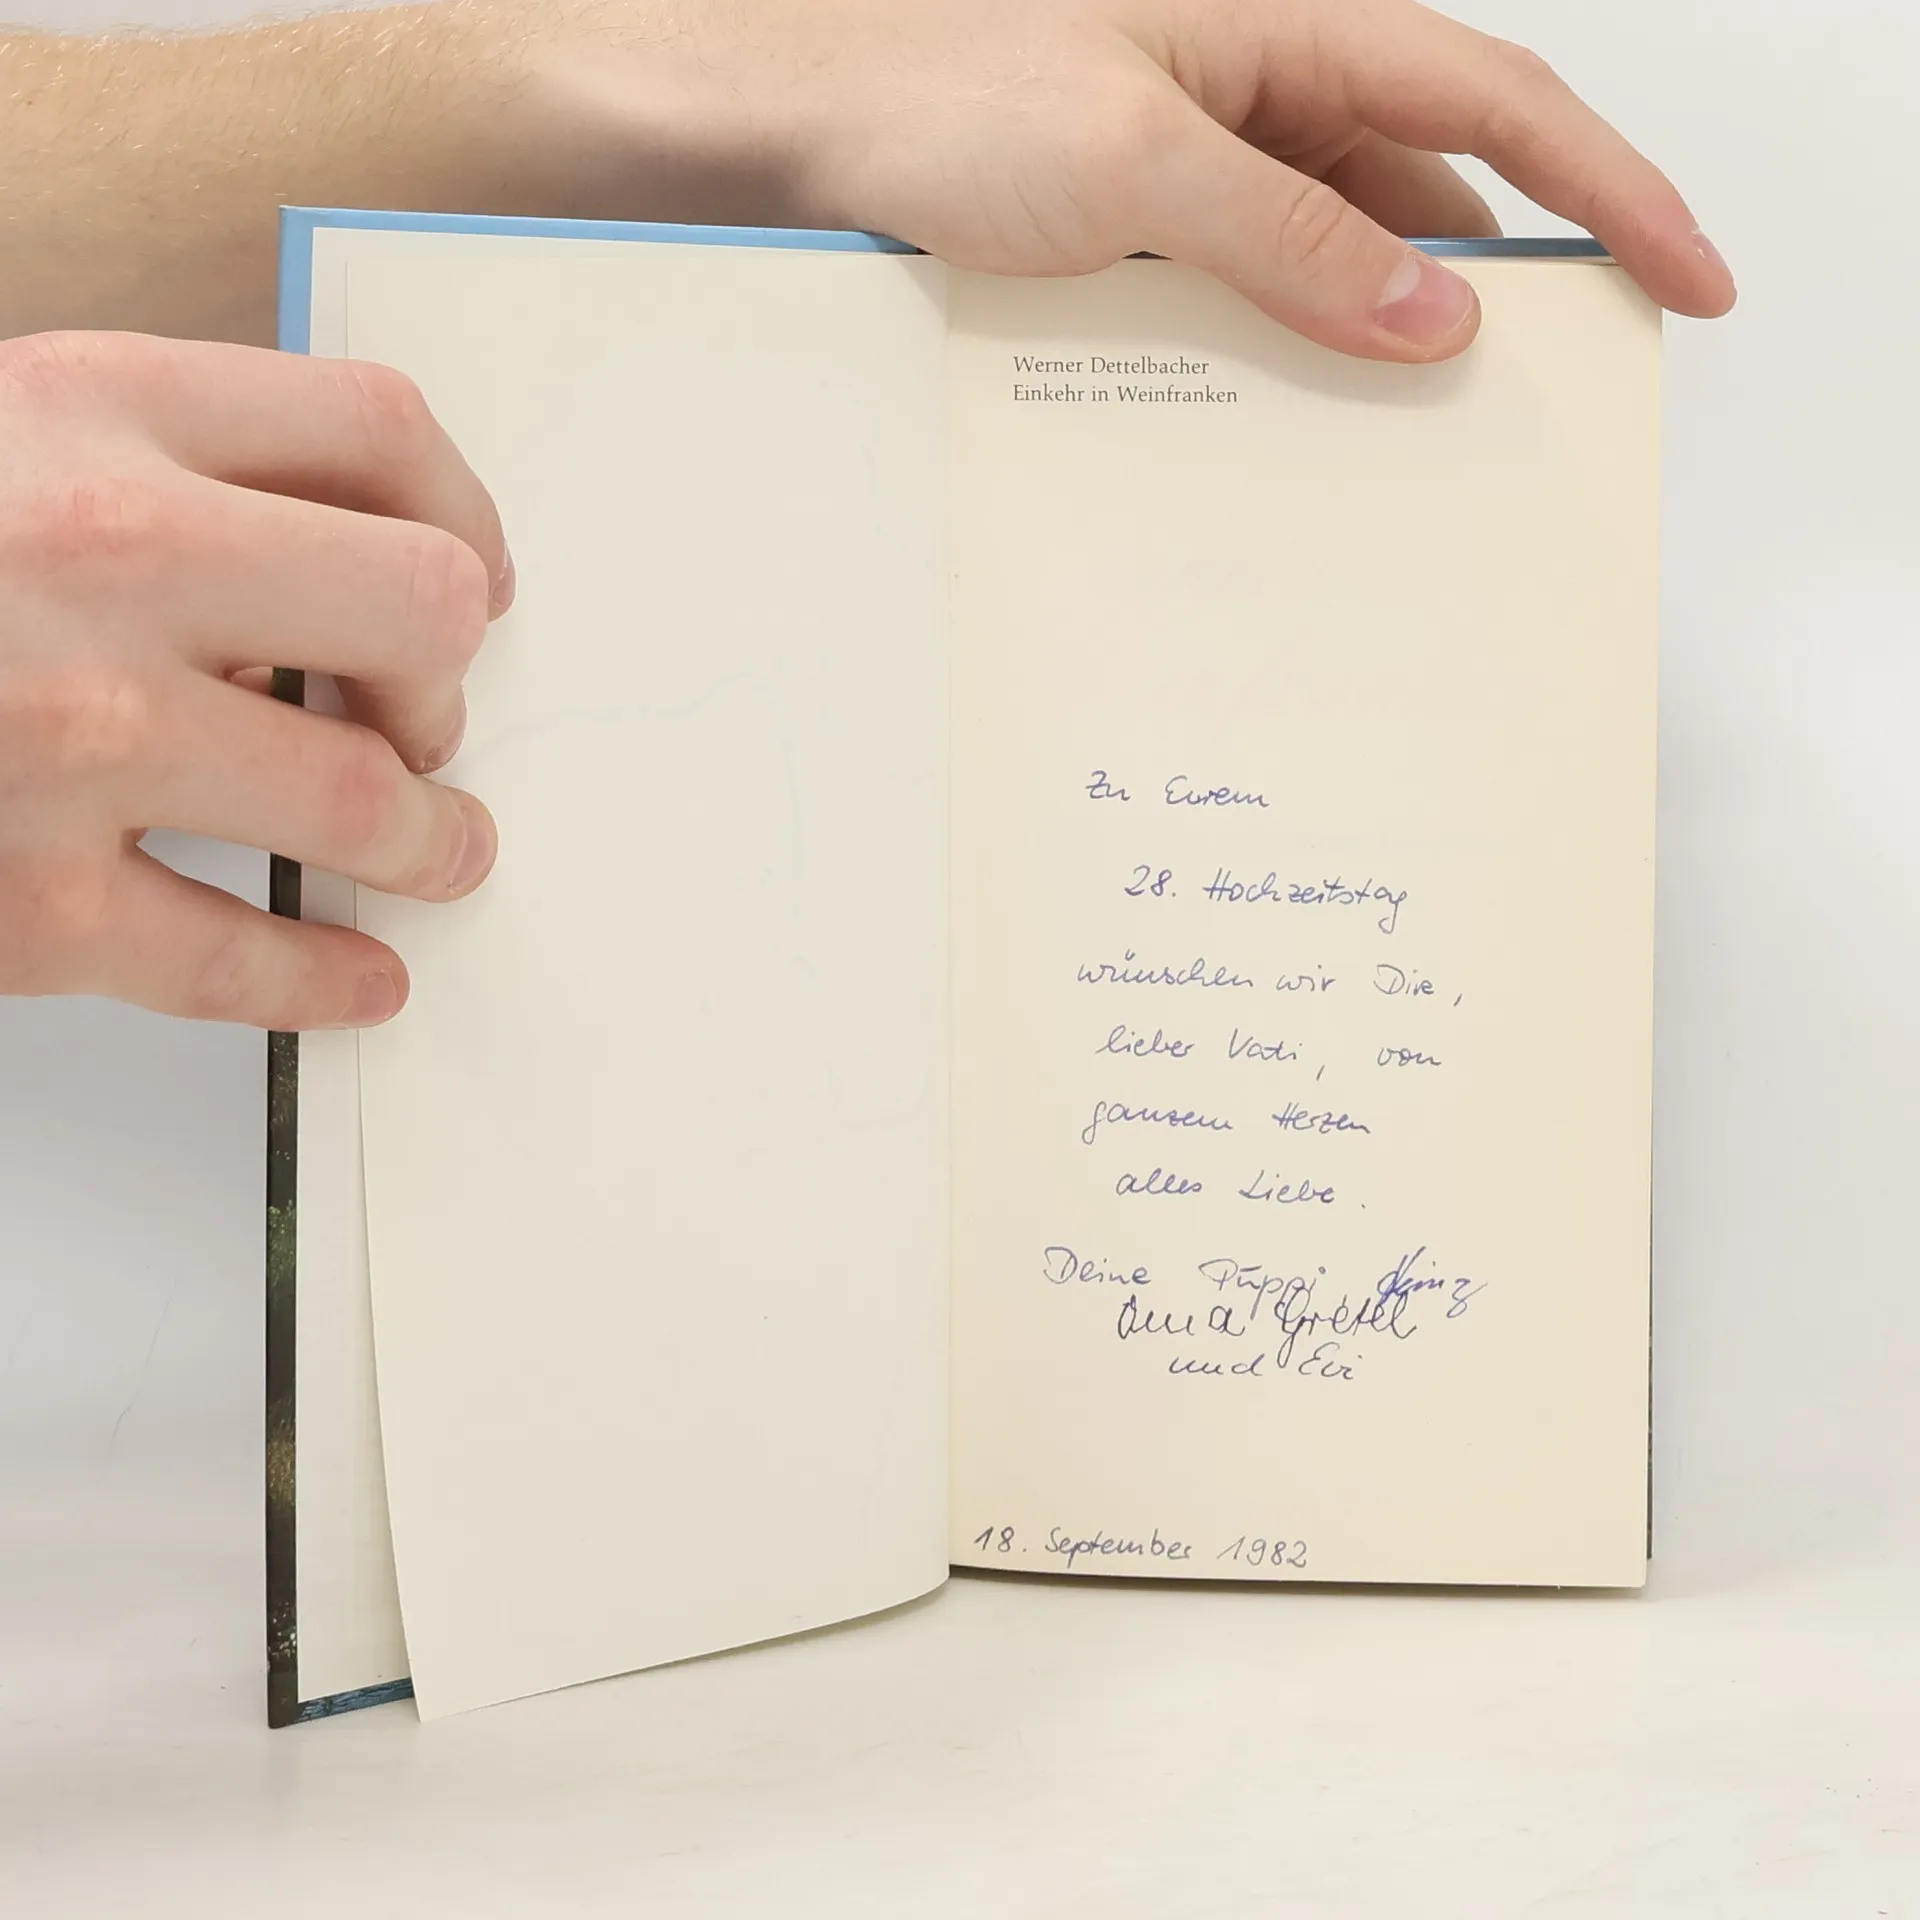 Werner Dettelbacher
Einkehr in Weinfranken
Zu Eurem
28. Hochzeitstag
wünschen wir Dir,
lieber Vati, von
ganzem Herzen
alles Liebe.
Deine Püppi Heinz
Oma Gretel
und Evi
18. September 1982